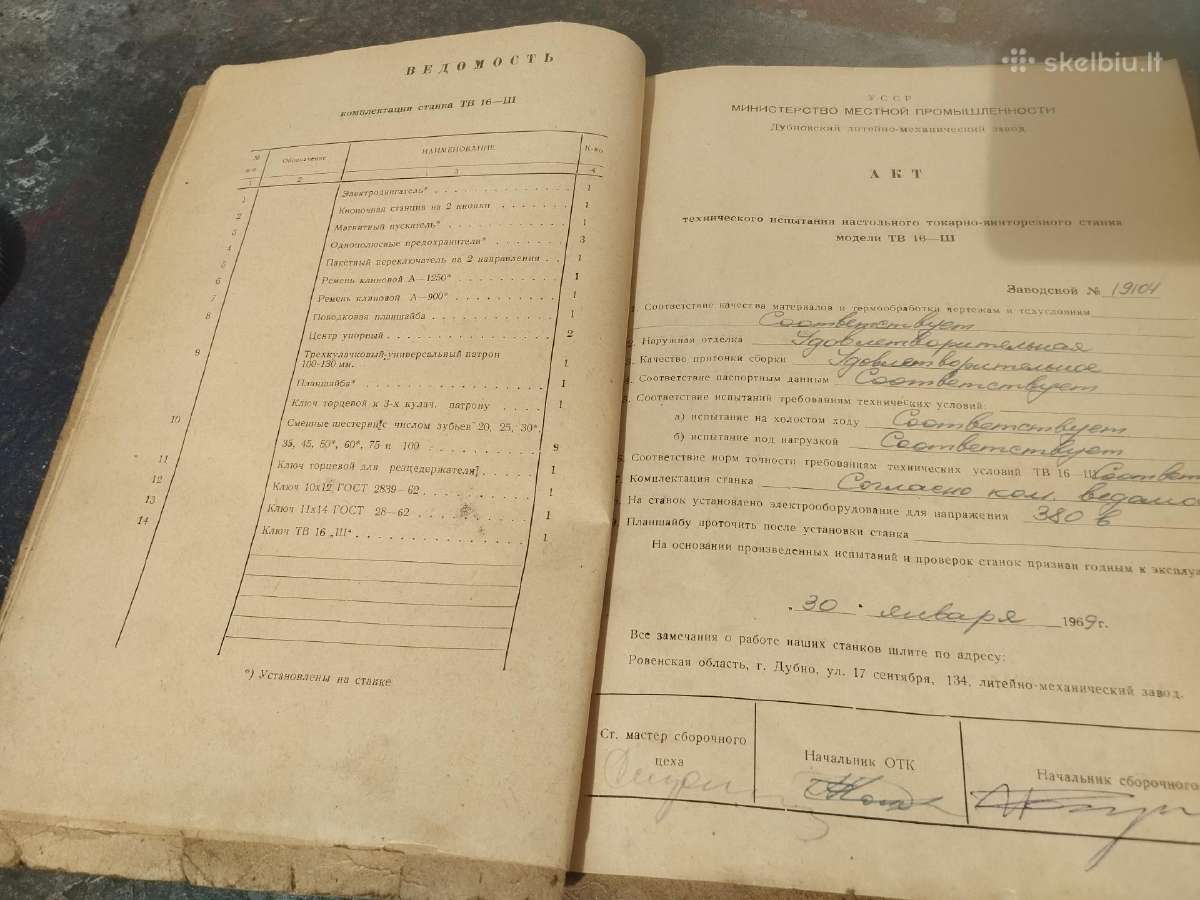 ВЕДОМОСТЬ
комплектации станка ТВ 16—Ш
№ п-п Обозначение НАИМЕНОВАНИЕ К-во
1 2 3 4
1 Электродвигатель* 1
2 Кнопочная станция на 2 кнопки 1
3 Магнитный пускатель* 1
4 Однополюсные предохранители* 3
5 Пакетный переключатель на 2 направления 1
6 Ремень клиновой А—1250* 1
7 Ремень клиновой А—900* 1
8 Поводковая планшайба 1
Центр упорный 2
9 Трехкулачковый универсальный патрон
100-130 мм. 1
Планшайба* 1
Ключ торцевой к 3-х кулач. патрону 1
10 Сменные шестерни с числом зубьев 20, 25, 30*,
35, 45, 50*, 60*, 75 и 100 8
11 Ключ торцевой для резцедержателя 1
12 Ключ 10х12 ГОСТ 2839—62 1
13 Ключ 11х14 ГОСТ 28—62 1
14 Ключ ТВ 16 „Ш“ 1
*) Установлены на станке
skelbiu.lt
УССР
МИНИСТЕРСТВО МЕСТНОЙ ПРОМЫШЛЕННОСТИ
Дубновский литейно-механический завод
АКТ
технического испытания настольного токарно-винторезного станка
модели ТВ 16—Ш
Заводской № 19104
1. Соответствие качества материалов и термообработки чертежам и техусловиям
Соответствует
2. Наружная отделка Удовлетворительная
3. Качество пригонки сборки Удовлетворительное
4. Соответствие паспортным данным Соответствует
5. Соответствие испытаний требованиям технических условий:
а) испытание на холостом ходу Соответствует
б) испытание под нагрузкой Соответствует
6. Соответствие норм точности требованиям технических условий ТВ 16—Ш Соответ
7. Комплектация станка Согласно ком. ведомо
На станок установлено электрооборудование для напряжения 380 в
Планшайбу проточить после установки станка
На основании произведенных испытаний и проверок станок признан годным к эксплуа
„30“ января 1969 г.
Все замечания о работе наших станков шлите по адресу:
Ровенская область, г. Дубно, ул. 17 сентября, 134, литейно-механический завод.
Ст. мастер сборочного
цеха
Начальник ОТК
Начальник сборочного